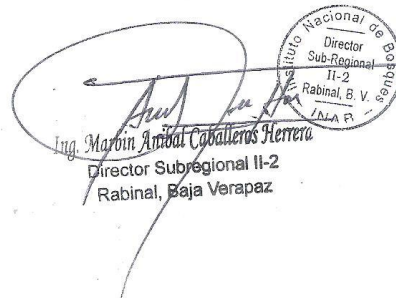 Instituto Nacional de Bosques
Director
Sub-Regional
II-2
Rabinal, B. V.
INAB
Ing. Marbin Anibal Caballeros Herrera
Director Subregional II-2
Rabinal, Baja Verapaz